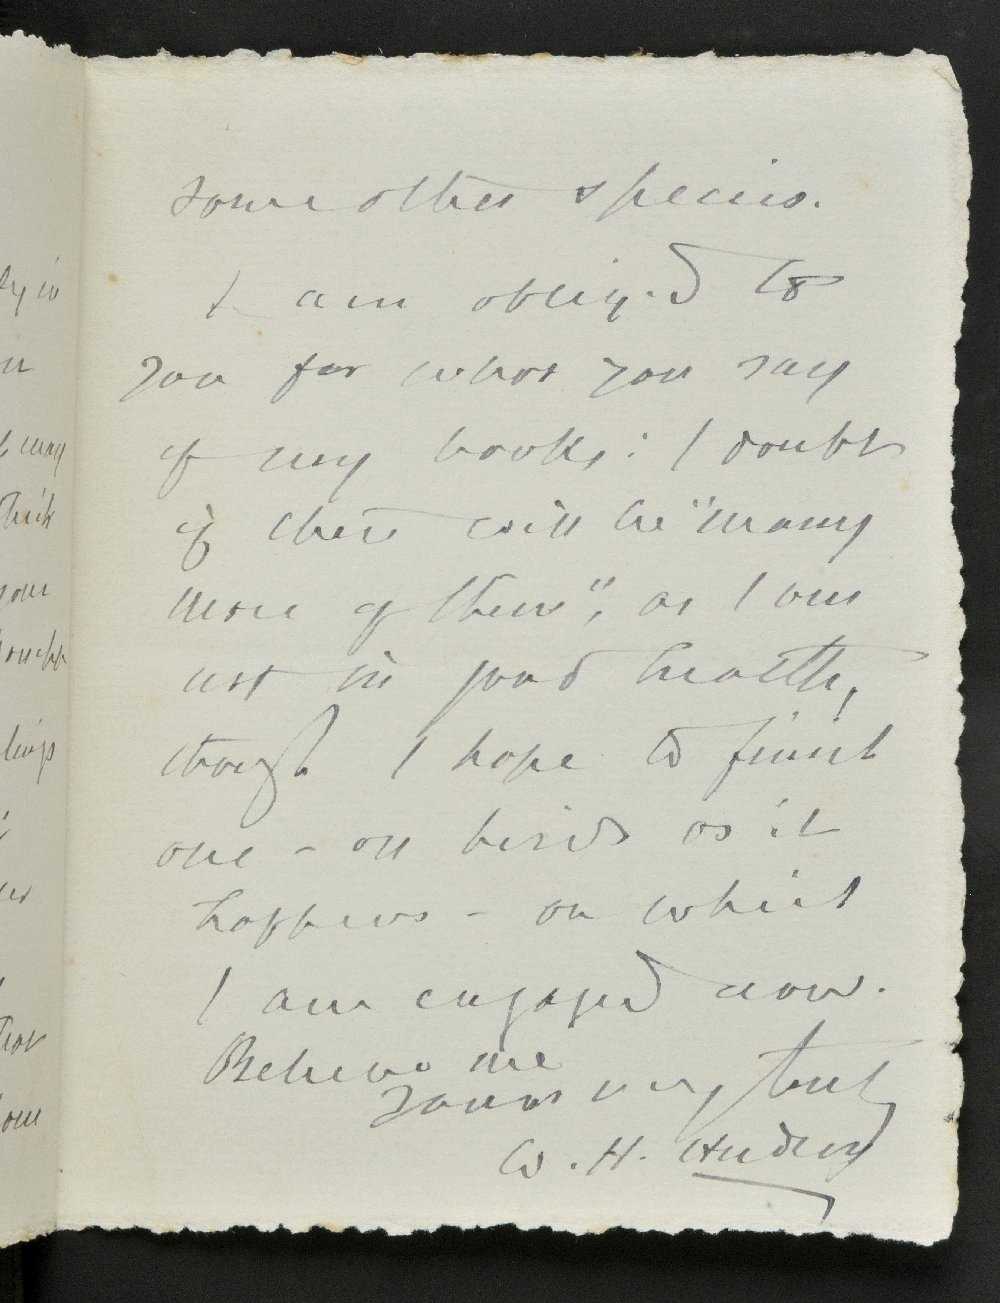 some other species.
I am obliged to
you for what you say
of my books: I doubt
if there will be "many
more of them", as I am
not in good health,
though I hope to finish
one - on birds as it
happens - on which
I am engaged now.
Believe me
yours very truly
W. H. Hudson